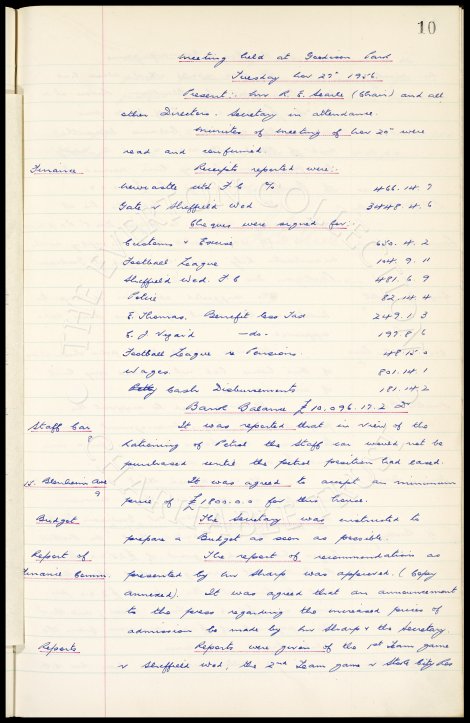 10
Meeting held at Goodison Park
Tuesday Nov 27th 1956.
Present:- Mr R. E. Searle (Chair) and all
other Directors. Secretary in attendance.
Minutes of meeting of Nov 20th were
read and confirmed.
Finance. Receipts reported were:-
Newcastle Utd F C 466. 14. 7
Gate v Sheffield Wed 3448. 4. 6
Cheques were signed for:-
Customs & Excise 650. 4. 2
Football League 9. 11
Sheffield Wed. F C 481. 6. 9
Police 82. 14. 4
E. Thomas. Benefit less Tax 249. 1. 3
E. J. 197. 8. 6
Football League re Pensions. 48. 15. 0
Wages. 801. 14. 1
Petty Cash Disbursements 181. 14. 2
Bank Balance £10,096. 17. 2 Dr
Staff Car It was reported that in view of the
8
Rationing of Petrol the Staff car would not be
purchased until the petrol position had eased.
Blenheim Ave It was agreed to accept an minimum
9
price of £1800. 0. 0 for this house.
Budget The Secretary was instructed to
prepare a Budget as soon as possible.
Report of The report of recommendations as
Finance Comm. presented by Mr Sharp was approved. (Copy
annexed). It was agreed that an announcement
to the press regarding the increased prices of
admission be made by Mr Sharp & the Secretary.
Reports Reports were given of the 1st Team game
v Sheffield Wed, the 2nd Team game v Stoke City Res
THE EVERTON COLLECTION